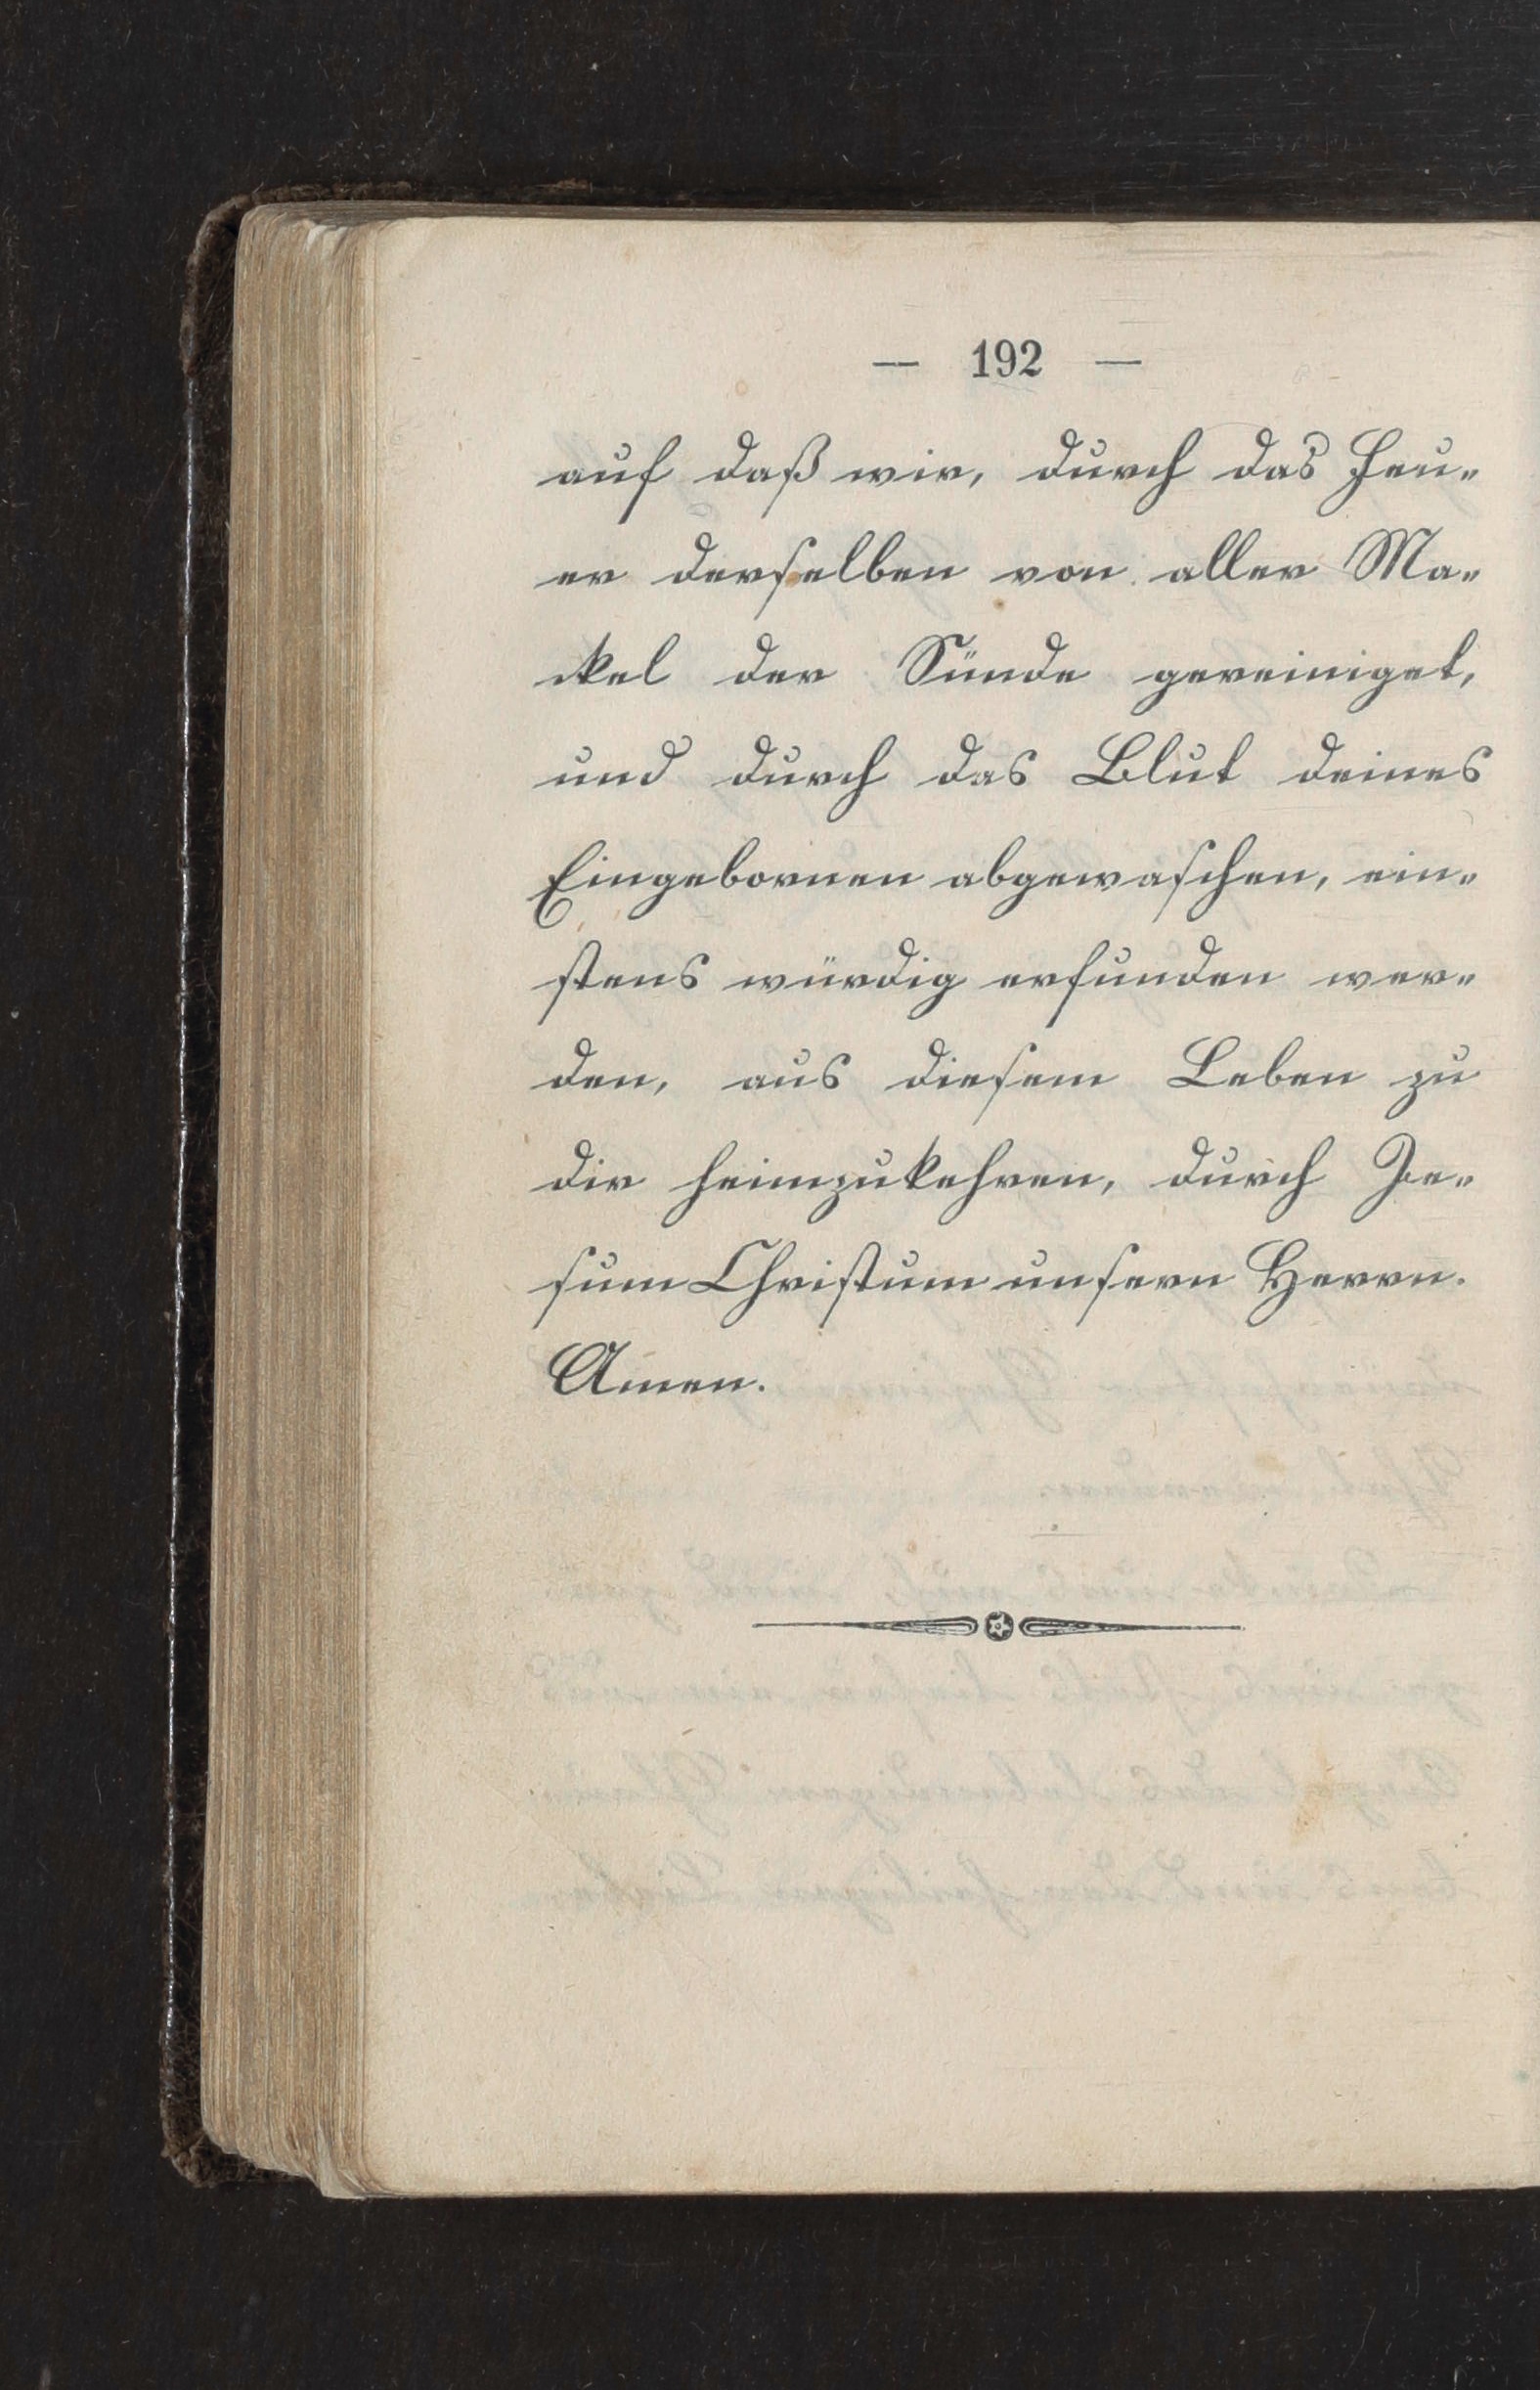 — 192 —
auf daß wir, durch das Feu-
er derselben von aller Ma-
ckel der Sünde gereiniget,
und durch das Blut deines
Eingebornen abgewaschen, ein-
stens würdig erfunden wer-
den, aus diesem Leben zu
dir heimzukehren, durch Je-
sum Christum unsern Herrn.
Amen.